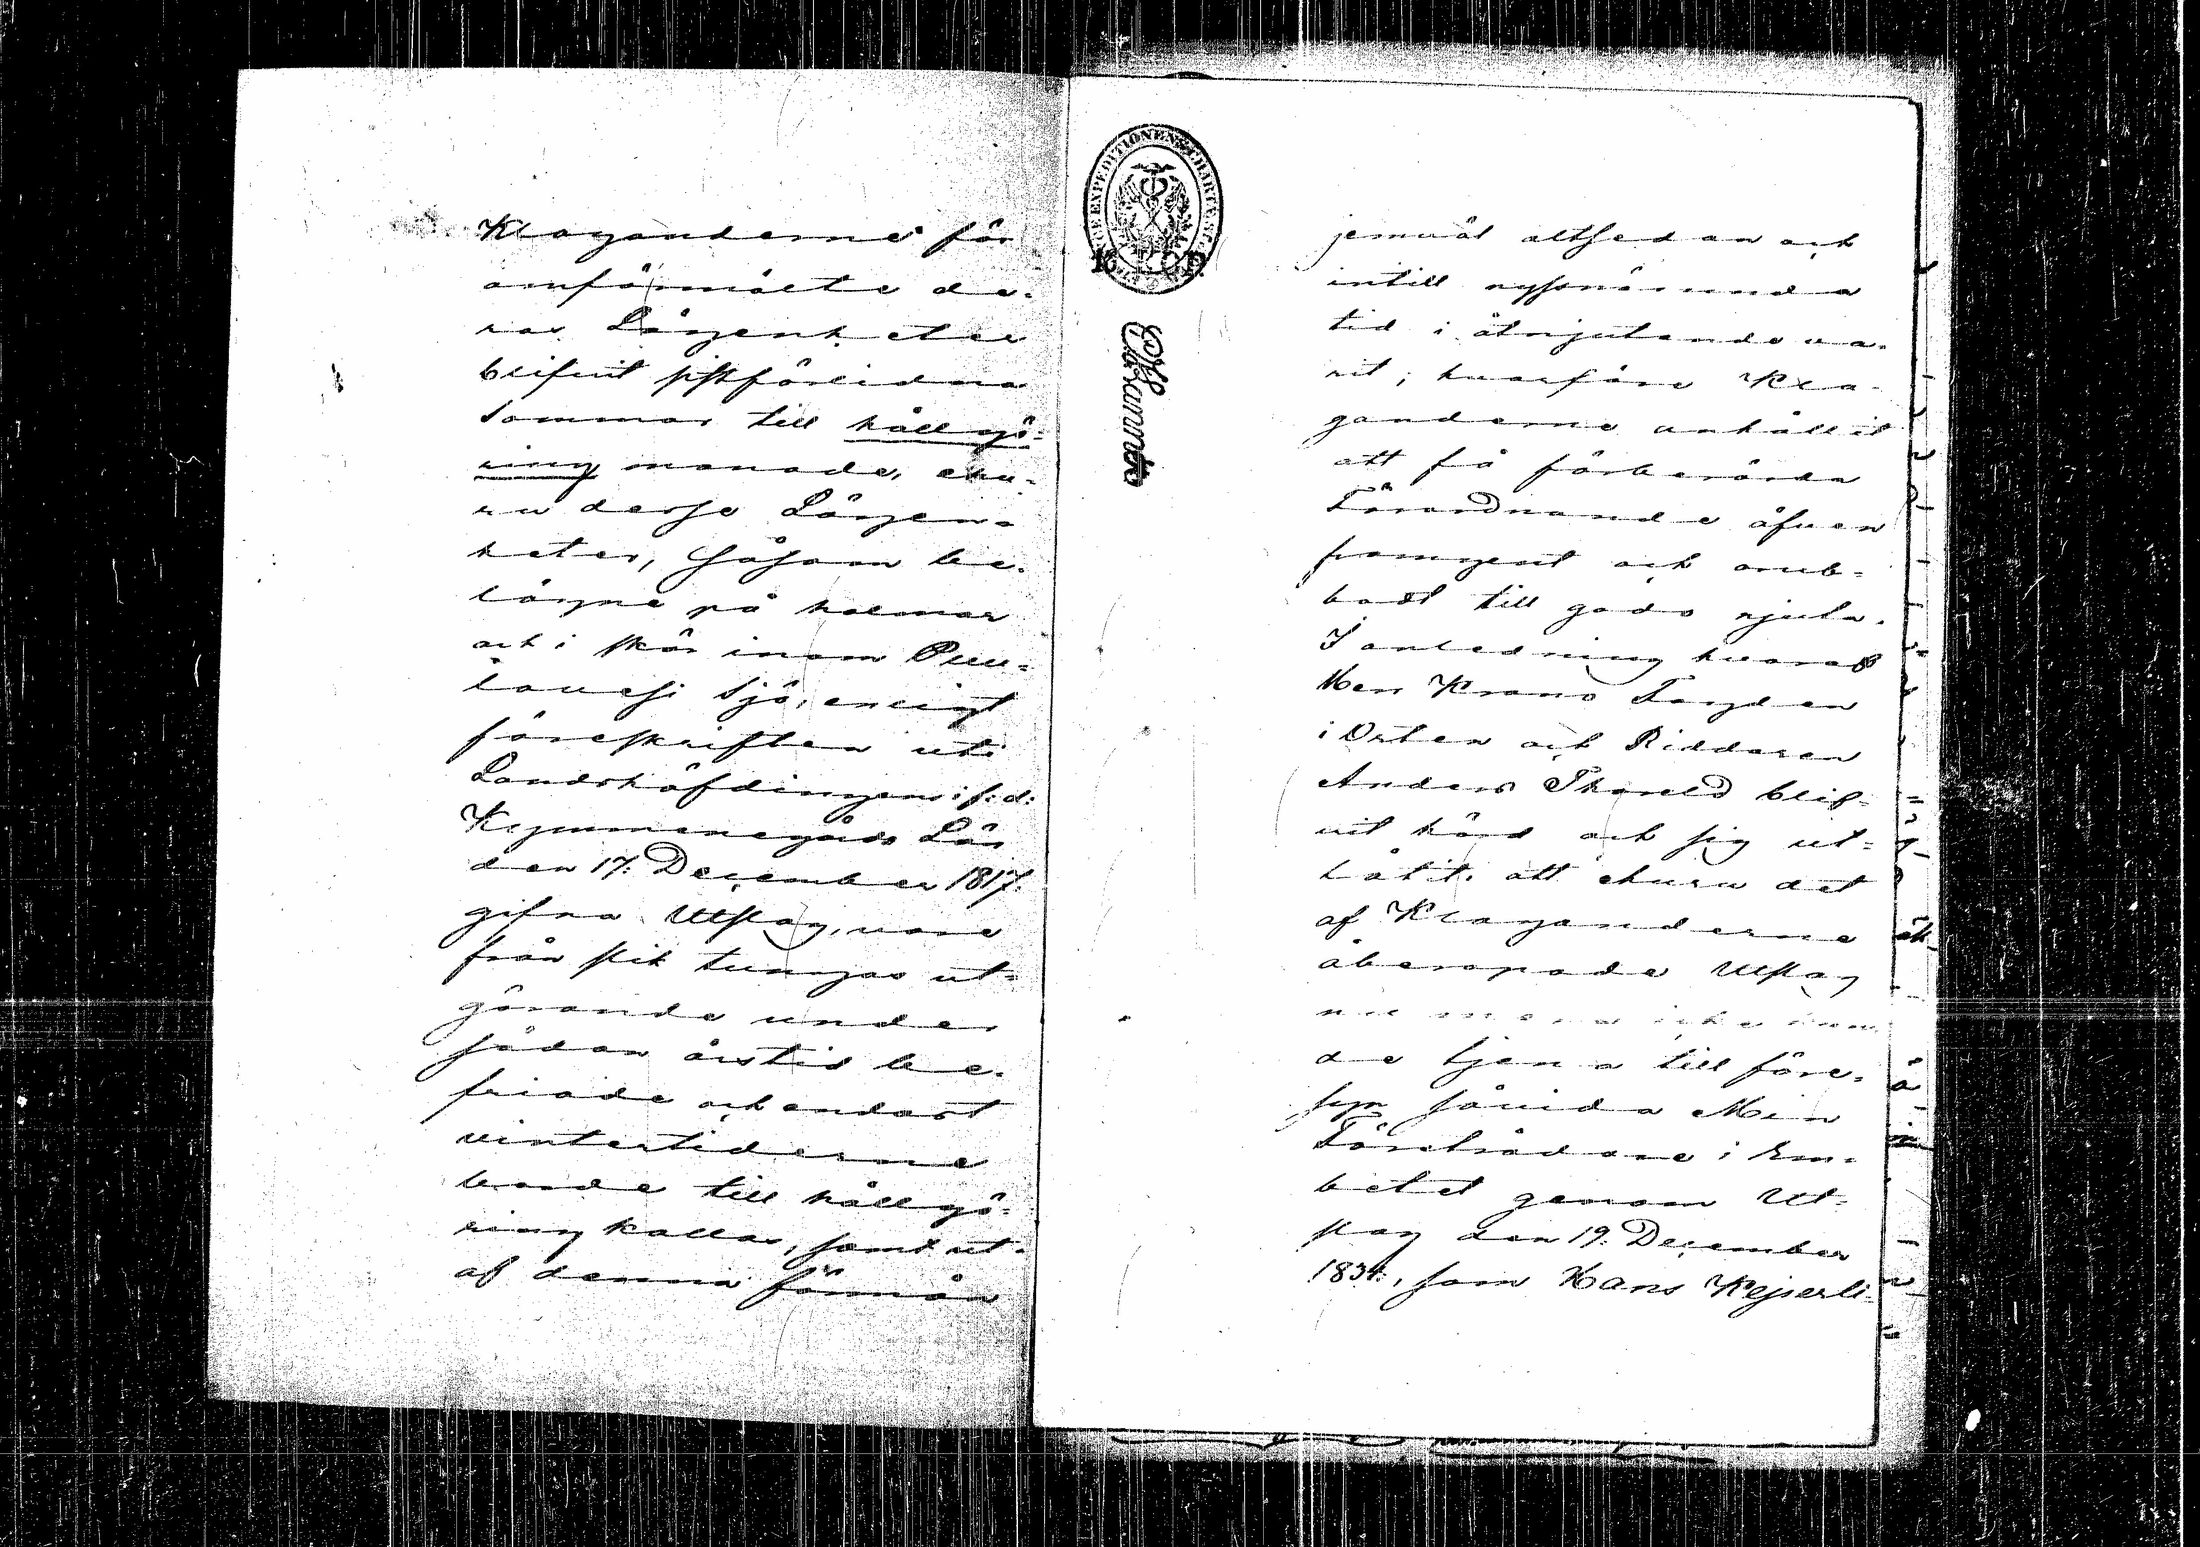 Klaganderne för
omförmälte de-
ras Lägenheter
blifvit sistförlidne
Sommar till hållgö-
ring manade, ehu-
ru desse Lägen-
heter, såsom be-
lägne på holmar
och i skär inom Pull-
lavesi Sjö, enligt
föreskriften uti
Landshöfdingens i f: d:
Kymmenegårds Län
den 17: December 1817:
gifna Utslag, vore
från slik tungas ut-
görande under
sådan årstid be-
friade och endast
vintertiderne
borde till hållgö-
ring kallas, samt ut-
af denna förmån
jemväl altsedan och
intill nyssnämnda
tid i åtnjutande va-
rit; hvarföre Kla-
ganderne anhållit
att få förberörde
Förordnande äfven
framgent och orub-
badt till godo njuta.
I anledning hvaraf
Herr Krono Fogden
i Orten och Riddaren
Anders Thoreld blif-
vit hörd och sig ut-
låtit, att ehuru det
af Klaganderne
åberopade Utslag
nu mera icke kun-
de tjena till före-
syn såvida Min
Företrädare i Em-
betet genom Ut-
slag den 19: December
1834:, som Hans Kejserli-